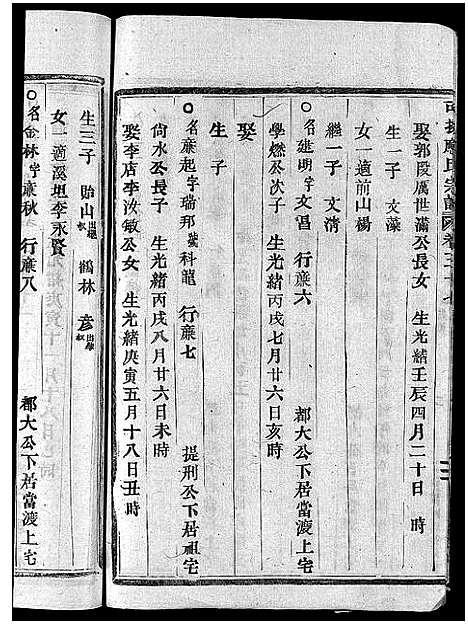 娶郭段厲世滿公長女　生光緒壬辰四月二十日　時
生一子　文藻
女一適前山楊
繼一子　文清
○名建明字文昌　行廉六　都大公下居當渡上宅
學燃公次子　生光緒丙戌七月廿六日亥時
娶
生　子
○名廉起字瑞邦號科龍　行廉七　提刑公下居祖宅
尚水公長子　生光緒丙戌八月廿六日未時
娶李店李汝敏公女　生光緒庚寅五月十八日丑時
生三子　貽山　鶴林　彥
女一適溪坦李永賢
○名金林字廉秋　行廉八　都大公下居當渡上宅